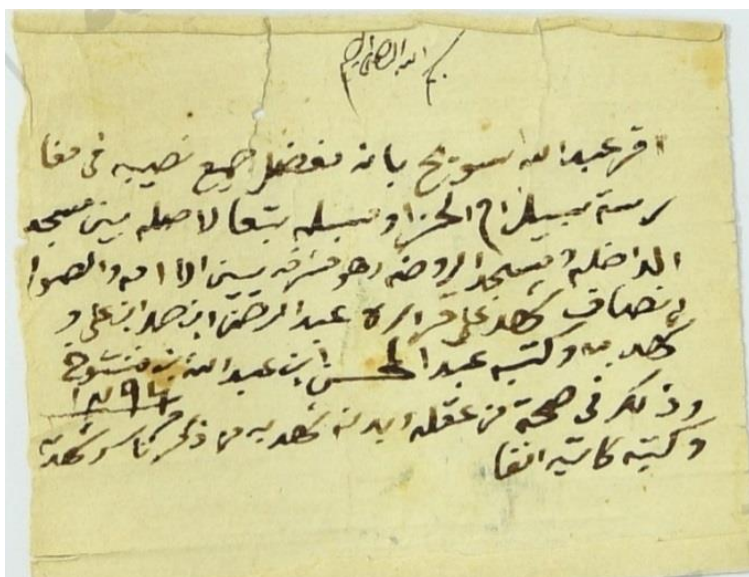 بسم الله الرحمن الرحيم
اقر عبدالله سويح بانه جميع نصيبه في مغا
رسة سبيل ام الحزا وسبله تبعا لاصله بين مسجد
الداخلة ومسجد الروضه وهو مشرقه بين الامام والصوام
انصاف شهد على اقراره عبدالرحمن ابن حمد ابن علي و
شهد به وكتبه عبدالمحسن ابن عبدالله بن
١٢٩٤
وذلك في صحة من عقله وبدنه شهد به من ذكر
وكتبه كاتبه انفا